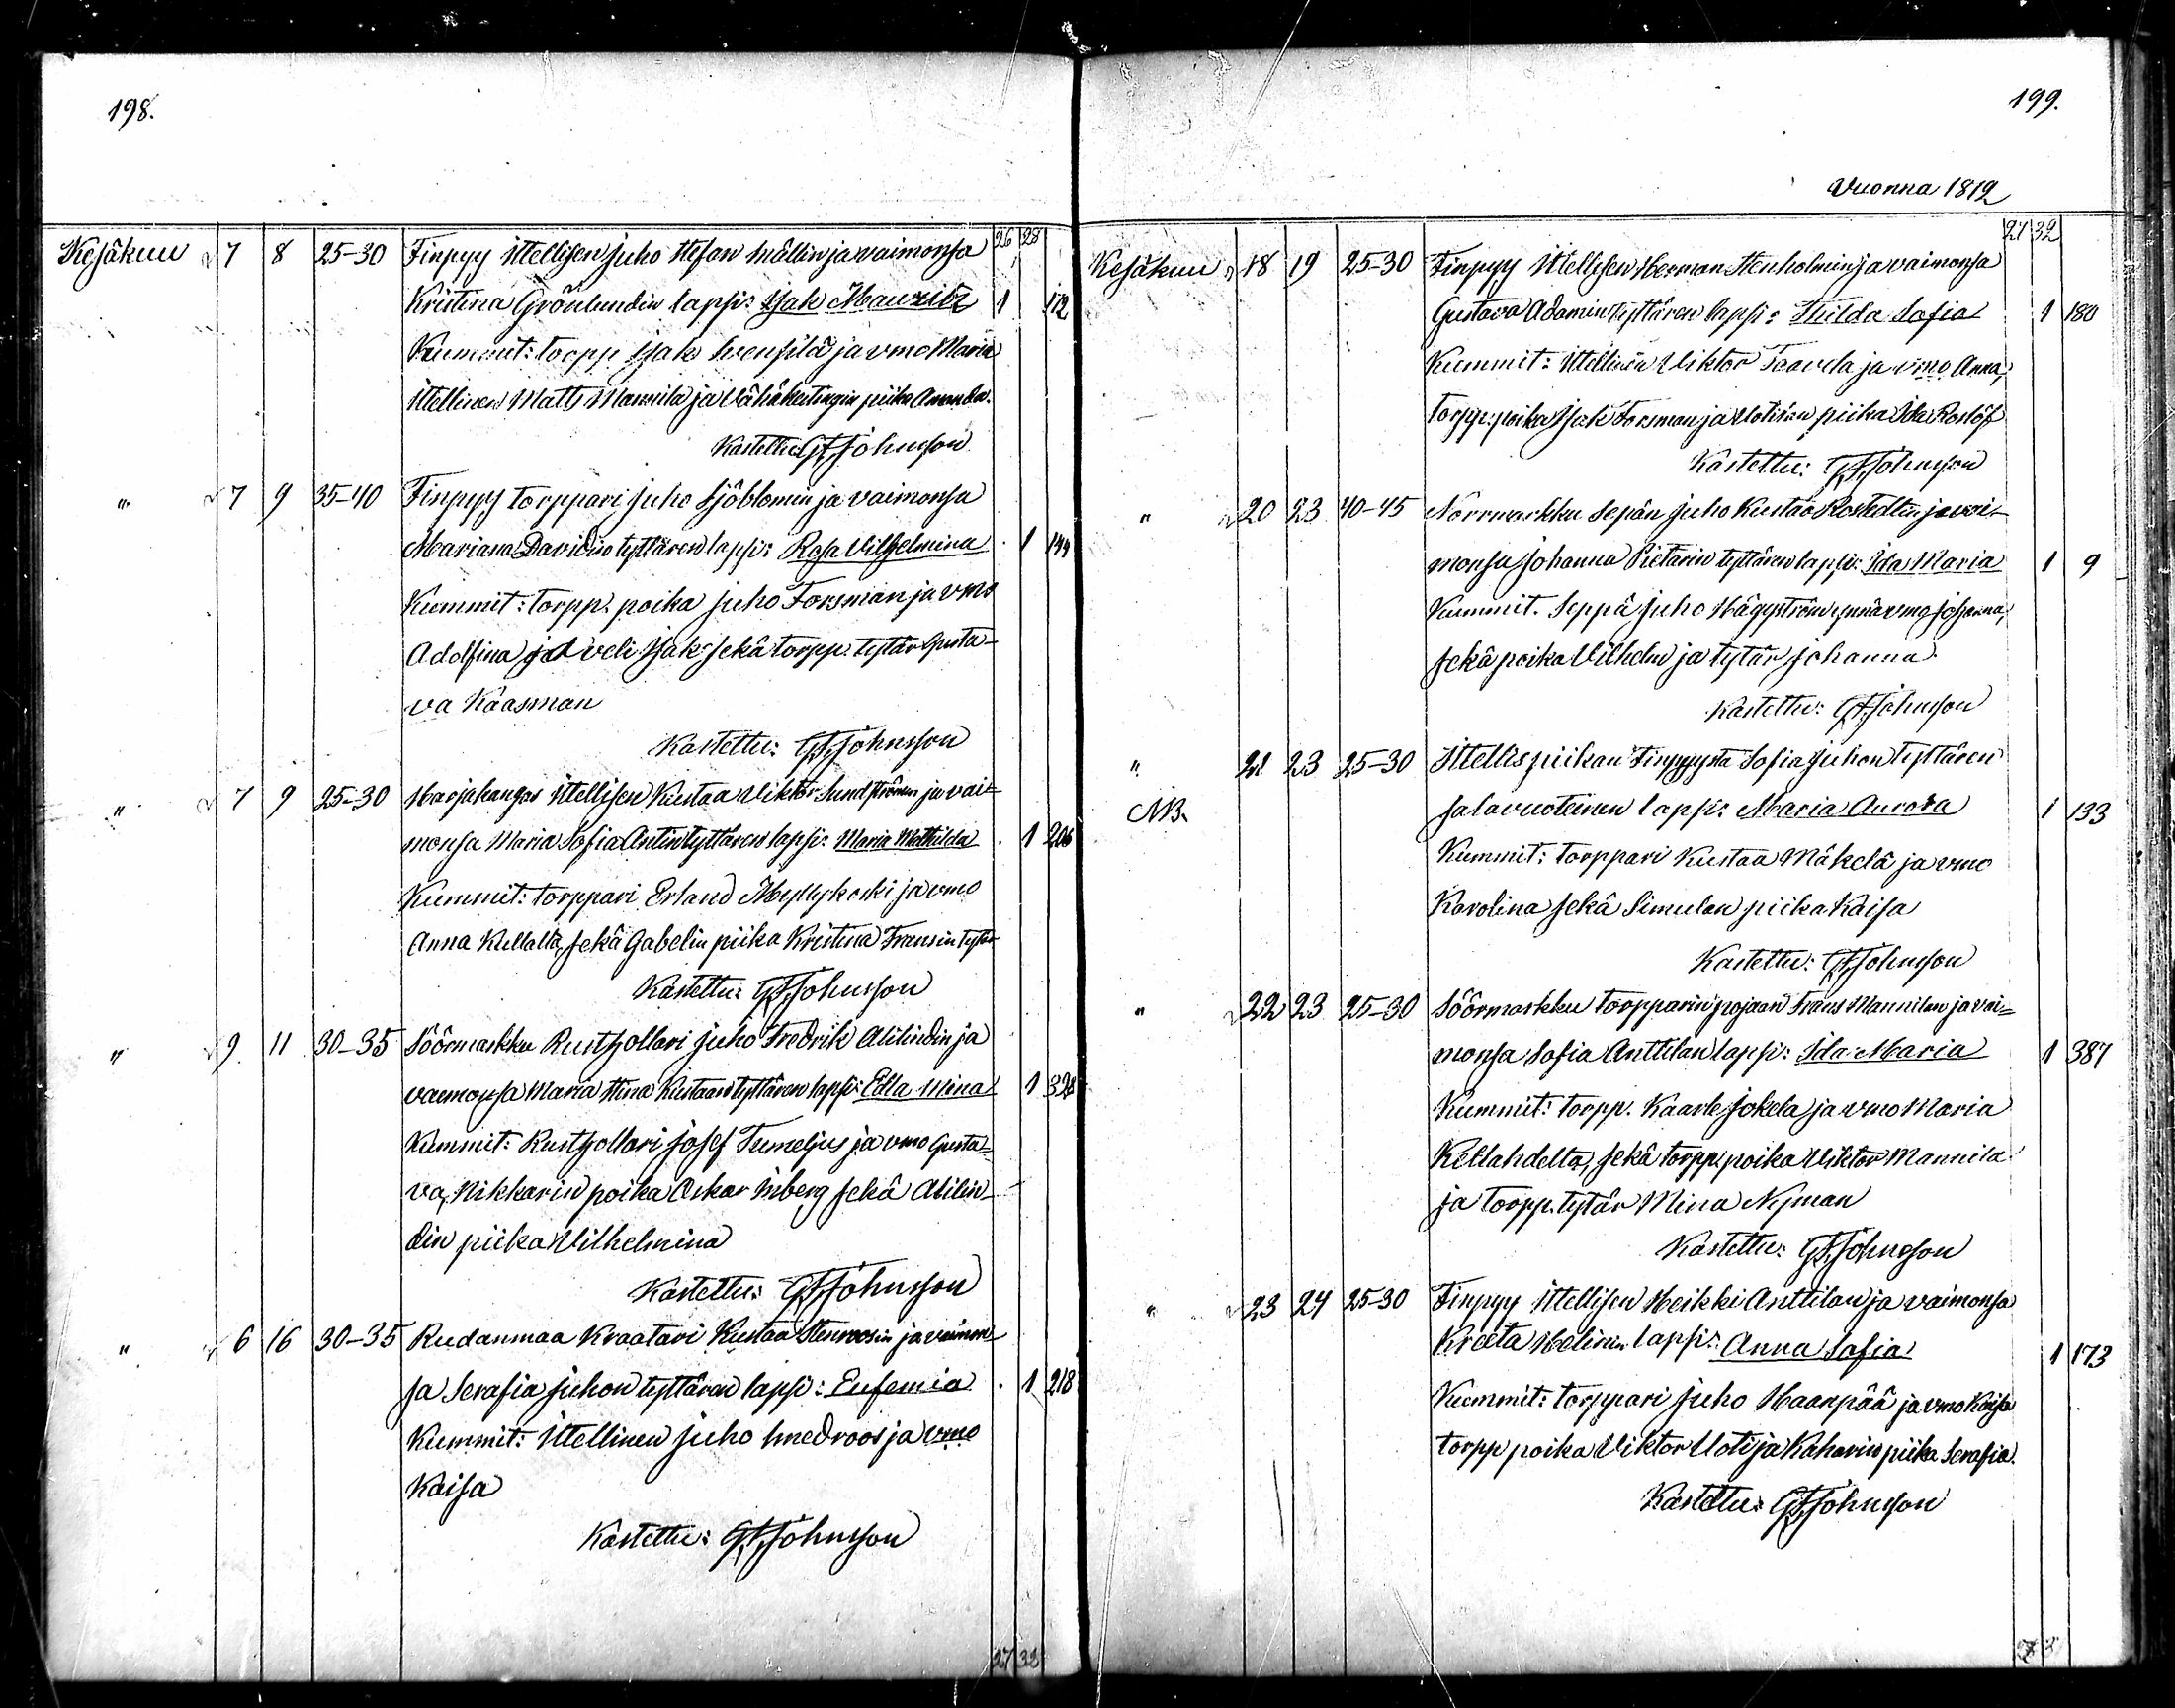 198.
26 28
Kesäkuu 7 8 25-30 Finpyy ittellisen Juho Stefan Mällin ja vaimonsa
Kristina Grönlundin lapsi: Isak Mauritz 1 172
Kummit: torpp. Isak Svensilä ja vmo Maria
ittellinen Matts Mannila ja Vähäkatingin piika Amanda.
Kastettu: GFJohnsson
" 7 9 35-40 Finpyy torppari Juho Sjöblomin ja vaimonsa
Mariana Davidin tyttären lapsi: Rosa Vilhelmina 1 144
Kummit: torpp. poika Juho Forsman ja vmo
Adolfina ja veli Isak sekä torpp. tytär Gusta-
va Kaasman
Kastettu: GFJohnsson
" 7 9 25-30 Harjakangas ittellisen Kustaa Viktor Sundströmin ja vai-
monsa Maria Sofia Antintyttären lapsi: Maria Mathilda 1 206
Kummit: torppari Erland Myllykoski ja vmo
Anna Kullalta, sekä Gabelin piika Kristina Fransin tytär
Kastettu: GFJohnsson
" 9 11 30-35 Söörmarkku Rusthollari Juho Fredrik Alilindin ja
vaimonsa Maria Stina Kustaan tyttären lapsi: Edla Mina 1 328
Kummit: Rusthollari Josef Tumeljus ja vmo Gusta-
va, Nikkarin poika Oskar Inberg sekä Alilin-
din piika Vilhelmina
Kastettu: GFJohnsson
" 6 16 30-35 Rudanmaa Kraatari Kustaa Stenroosin ja vaimon-
sa Serafia Juhon tyttären lapsi: Eufemia 1 218
Kummit: ittellinen Juho Smedroos ja vmo
Kaisa
Kastettu: GFJohnsson
27 32
199.
Vuonna 1812
27 32
Kesäkuu 18 19 25-30 Finpyy ittellisen Herman Stenholmin ja vaimonsa
Gustava Adamin tyttären lapsi: Hilda Sofia 1 180
Kummit: ittellinen Viktor Taavela ja vmo Anna,
torpp. poika Isak Forsman ja Uotilan piika Ida Roslöf
Kastettu: GFJohnsson
" 20 23 40-45 Norrmarkku Sepän Juho Kustaa Rostedtin ja vai-
monsa Johanna Pietarin tyttären lapsi: Ida Maria 1 9
Kummit. Seppä Juho Häggström ynnä vmo Johanna,
sekä poika Vilhelm ja tytär Johanna
Kastettu: GFJohnsson
" 21 23 25-30 Ittellis piikan Finpyystä Sofia Juhon tyttären
NB. salavuoteinen lapsi: Maria Aurora 1 133
Kummit: torppari Kustaa Mäkelä ja vmo
Karolina sekä Simulan piika Kaisa
Kastettu: GFJohnsson
" 22 23 25-30 Söörmarkku torpparin pojaan Frans Mannilan ja vai-
monsa Sofia Anttilan lapsi: Ida Maria 1 387
Kummit: torpp. Kaarle Jokela ja vmo Maria
Kellahdelta, sekä torpp. poika Viktor Mannila
ja torpp. tytär Mina Nyman
Kastettu: GFJohnsson
" 23 24 25-30 Finpyy ittellisen Heikki Anttilan ja vaimonsa
Kreeta Helinin lapsi: Anna Sofia 1 173
Kummit: torppari Juho Haanpää ja vmo Kaisa
torpp poika Viktor Uoti ja Kaharin piika Serafia.
Kastettu: GFJohnsson